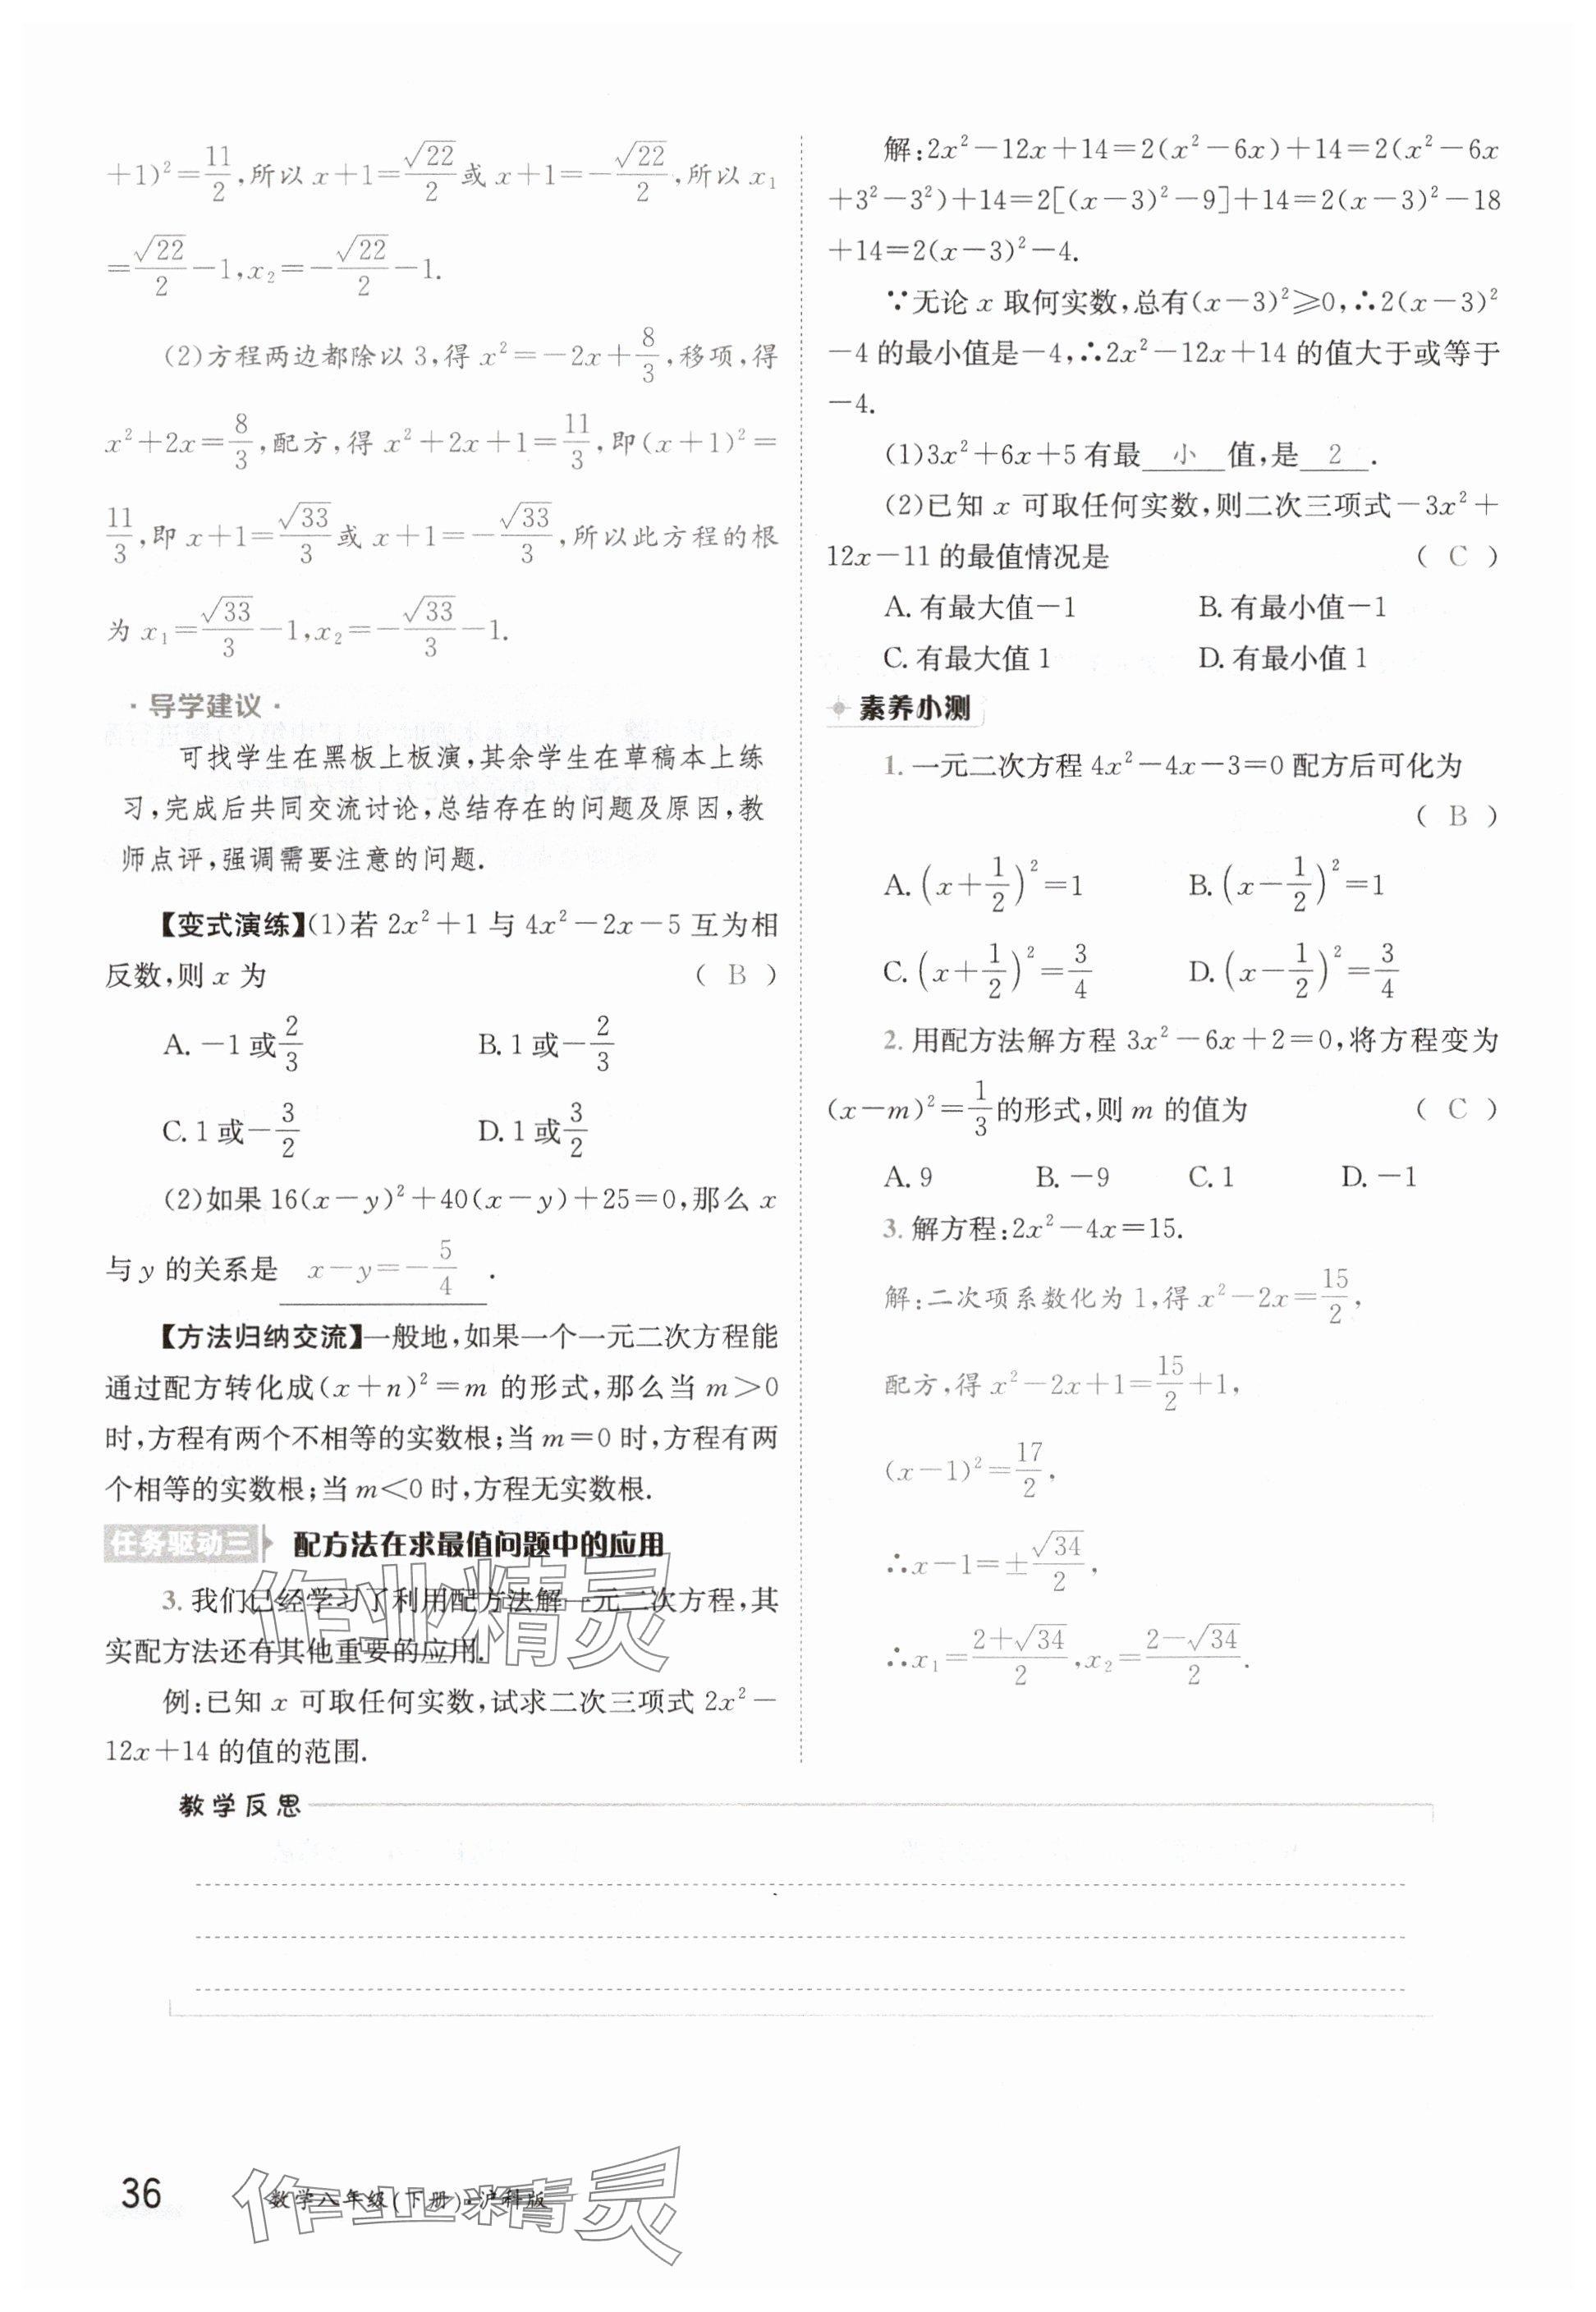 +1)²=11/2,所以 x+1=√22/2或 x+1=-√22/2,所以 x₁
=√22/2-1,x₂=-√22/2-1.
(2)方程两边都除以 3,得 x²=-2x+8/3,移项,得
x²+2x=8/3,配方,得 x²+2x+1=11/3,即(x+1)²=
11/3,即 x+1=√33/3或 x+1=-√33/3,所以此方程的根
为 x₁=√33/3-1,x₂=-√33/3-1.
·导学建议·
可找学生在黑板上板演,其余学生在草稿本上练
习,完成后共同交流讨论,总结存在的问题及原因,教
师点评,强调需要注意的问题.
【变式演练】(1)若 2x²+1 与 4x²-2x-5 互为相
反数,则 x 为 ( B )
A. -1 或2/3 B. 1 或-2/3
C. 1 或-3/2 D. 1 或3/2
(2)如果 16(x-y)²+40(x-y)+25=0,那么 x
与 y 的关系是 x-y=-5/4 .
【方法归纳交流】一般地,如果一个一元二次方程能
通过配方转化成(x+n)²=m 的形式,那么当 m>0
时,方程有两个不相等的实数根;当 m=0 时,方程有两
个相等的实数根;当 m<0 时,方程无实数根.
任务驱动三 配方法在求最值问题中的应用
3. 我们已经学习了利用配方法解一元二次方程,其
实配方法还有其他重要的应用.
例:已知 x 可取任何实数,试求二次三项式 2x²-
12x+14 的值的范围.
解:2x²-12x+14=2(x²-6x)+14=2(x²-6x
+3²-3²)+14=2[(x-3)²-9]+14=2(x-3)²-18
+14=2(x-3)²-4.
∵无论 x 取何实数,总有(x-3)²≥0,∴2(x-3)²
-4 的最小值是-4,∴2x²-12x+14 的值大于或等于
-4.
(1)3x²+6x+5 有最 小 值,是 2 .
(2)已知 x 可取任何实数,则二次三项式-3x²+
12x-11 的最值情况是 ( C )
A. 有最大值-1 B. 有最小值-1
C. 有最大值 1 D. 有最小值 1
素养小测
1. 一元二次方程 4x²-4x-3=0 配方后可化为
( B )
A. (x+1/2)²=1 B. (x-1/2)²=1
C. (x+1/2)²=3/4 D. (x-1/2)²=3/4
2. 用配方法解方程 3x²-6x+2=0,将方程变为
(x-m)²=1/3的形式,则 m 的值为 ( C )
A. 9 B. -9 C. 1 D. -1
3. 解方程:2x²-4x=15.
解:二次项系数化为 1,得 x²-2x=15/2,
配方,得 x²-2x+1=15/2+1,
(x-1)²=17/2,
∴x-1=±√34/2,
∴x₁=(2+√34)/2,x₂=(2-√34)/2.
教学反思
36 数学八年级(下册)·沪科版
作业精灵
作业精灵